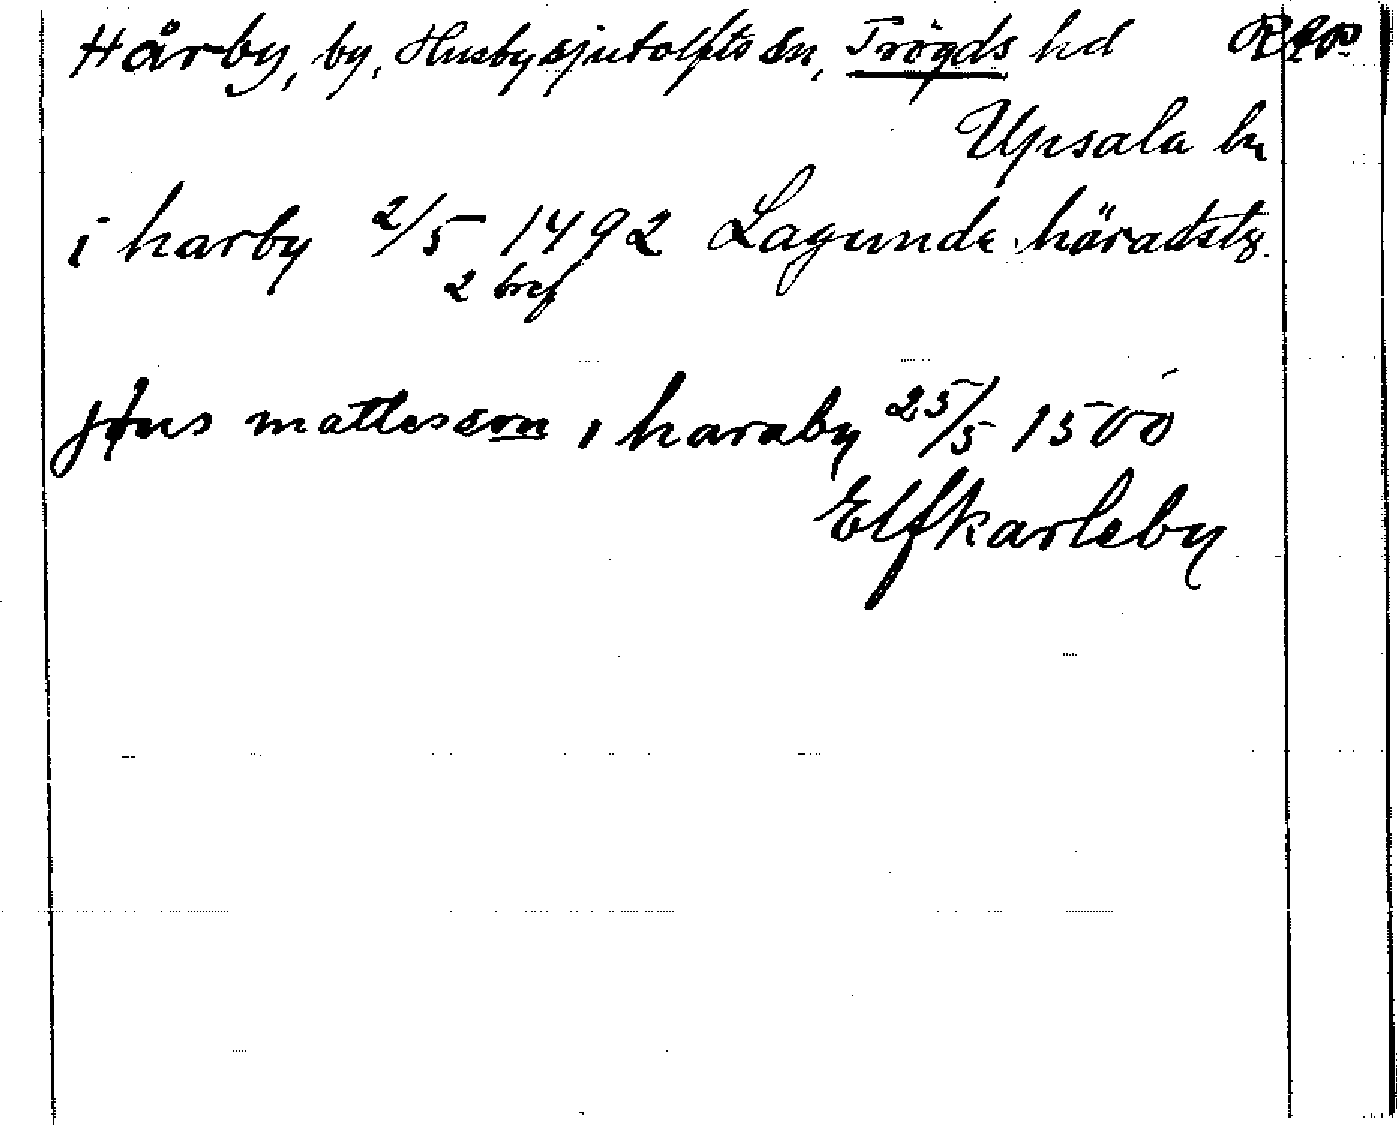 Hårby, by, Husbysjutolfts sn, Trögds hd RAP
Upsala ln
i harby 2/5 1492 Lagunda häradstg.
2 bref
jöns mattesson i haraby 25/5 1500
Elfkarleby